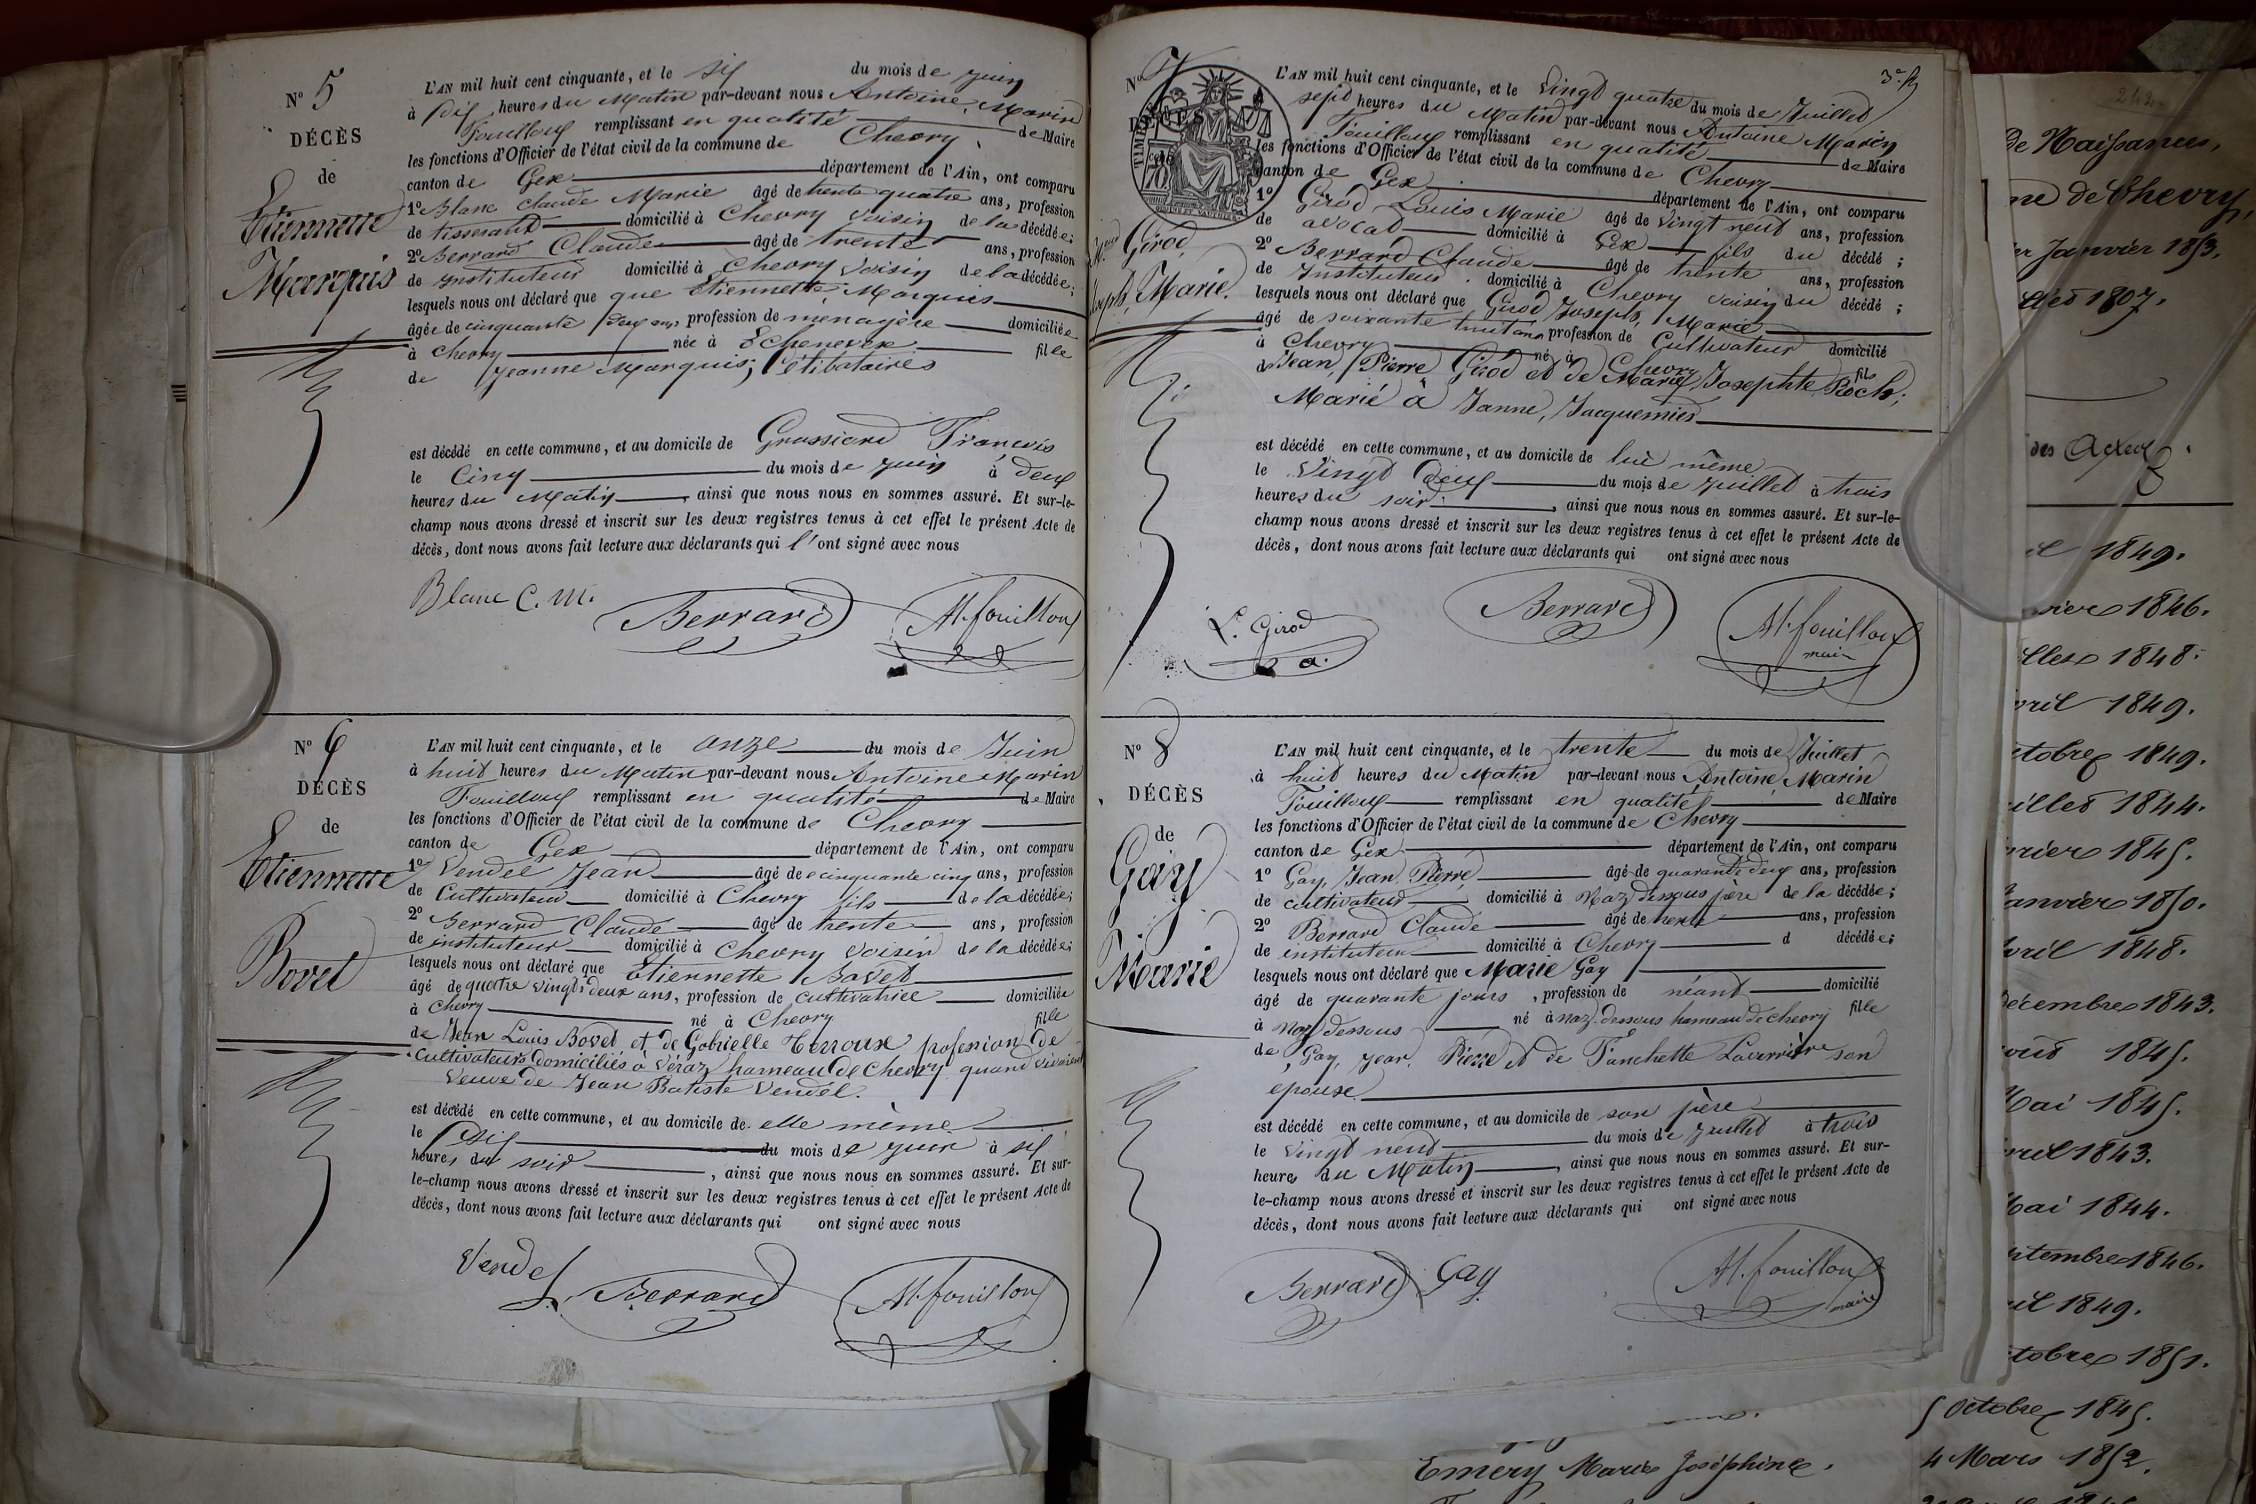 N° 5
DÉCÈS
de
Etiennette
Marquis
L'AN mil huit cent cinquante, et le six du mois de juin
à dix heures du Matin par-devant nous Antoine, Marin
Fouilloux remplissant en qualité de Maire
les fonctions d'Officier de l'état civil de la commune de Chevry
canton de Gex département de l'Ain, ont comparu
1° Blanc Claude Marie âgé de trente quatre ans, profession
de tisserand domicilié à Chevry voisin de la décédée;
2° Berrard Claude âgé de trente ans, profession
de instituteur domicilié à Chevry voisin de la décédée;
lesquels nous ont déclaré que que Etiennette, Marquis
âgée de cinquante deux ans, profession de menagère domiciliée
à Chevry née à Echenevex fille
de Jeanne Marquis; Célibataires
est décédé en cette commune, et au domicile de Grossiord François
le Cinq du mois de juin à deux
heures du Matin, ainsi que nous nous en sommes assuré. Et sur-le-
champ nous avons dressé et inscrit sur les deux registres tenus à cet effet le présent Acte de
décès, dont nous avons fait lecture aux déclarants qui l'ont signé avec nous
Blanc C. M. Berrard AM. fouilloux
N° 6
DÉCÈS
de
Etiennette
Bovet
L'AN mil huit cent cinquante, et le onze du mois de Juin
à huit heures du Matin par-devant nous Antoine Marin
Fouilloux remplissant en qualité de Maire
les fonctions d'Officier de l'état civil de la commune de Chevry
canton de Gex département de l'Ain, ont comparu
1° Vendel Jean âgé de cinquante cinq ans, profession
de Cultivateur domicilié à Chevry fils de la décédée;
2° Berrard Claude âgé de trente ans, profession
de instituteur domicilié à Chevry voisin de la décédée;
lesquels nous ont déclaré que Etiennette Bovet
âgé de quatre vingts deux ans, profession de cultivatrice domiciliée
à Chevry né à Chevry fille
de Jean Louis Bovet et de Gabrielle Terroux profession de
Cultivateurs domiciliés à Véraz hameau de Chevry quand vivaient
Veuve de Jean Batiste Vendel.
est décédé en cette commune, et au domicile de elle même
le dix du mois de juin à six
heures du soir, ainsi que nous nous en sommes assuré. Et sur-
le-champ nous avons dressé et inscrit sur les deux registres tenus à cet effet le présent Acte de
décès, dont nous avons fait lecture aux déclarants qui ont signé avec nous
Vendel Berrard AM. fouilloux
3e f
N° 7
DÉCÈS
TIMBRE
Girod,
Joseph, Marie.
L'AN mil huit cent cinquante, et le vingt quatre du mois de Juillet
à sept heures du Matin par-devant nous Antoine Marin
Fouilloux remplissant en qualité de Maire
les fonctions d'Officier de l'état civil de la commune de Chevry
canton de Gex département de l'Ain, ont comparu
1° Girod Louis Marie âgé de vingt neuf ans, profession
de avocat domicilié à Gex fils du décédé;
2° Berrard Claude âgé de trente ans, profession
de Instituteur domicilié à Chevry voisin du décédé;
lesquels nous ont déclaré que Girod Joseph, Marie
âgé de soixante huit ans profession de Cultivateur domicilié
à Chevry né à Chevry fils
de Jean, Pierre Girod et de Marie Josephte Roch;
Marié à Janne, Jacquemier
est décédé en cette commune, et au domicile de lui même
le Vingt deux du mois de juillet à trois
heures du soir, ainsi que nous nous en sommes assuré. Et sur-le-
champ nous avons dressé et inscrit sur les deux registres tenus à cet effet le présent Acte de
décès, dont nous avons fait lecture aux déclarants qui ont signé avec nous
L. Girod a. Berrard AM. fouilloux
maire
N° 8
DÉCÈS
de
Gay
Marie
L'AN mil huit cent cinquante, et le trente du mois de Juillet
à huit heures du Matin par-devant nous Antoine, Marin
Fouilloux remplissant en qualité de Maire
les fonctions d'Officier de l'état civil de la commune de Chevry
canton de Gex département de l'Ain, ont comparu
1° Gay, Jean Pierre âgé de quarante deux ans, profession
de cultivateur domicilié à Naz dessous père de la décédée;
2° Berrard Claude âgé de trente ans, profession
de instituteur domicilié à Chevry d décédée;
lesquels nous ont déclaré que Marie Gay
âgé de quarante jours, profession de néant domicilié
à Naz dessous né à Naz-dessous hameau de chevry fille
de, Gay, Jean, Pierre et de Fanchette Laverrière son
epouse
est décédé en cette commune, et au domicile de son père
le vingt neuf du mois de Juillet à trois
heures du Matin, ainsi que nous nous en sommes assuré. Et sur-
le-champ nous avons dressé et inscrit sur les deux registres tenus à cet effet le présent Acte de
décès, dont nous avons fait lecture aux déclarants qui ont signé avec nous
Berrard Gay AM. fouilloux
maire
de Naissances,
de Chevry,
Janvier 1853.
1807.
des Actes
1849.
1846.
1848.
1849.
1849.
1844.
1845.
Janvier 1850.
Avril 1848.
Décembre 1843.
1845.
Mai 1845.
1843.
Mai 1844.
1846.
1849.
1851.
5 Octobre 1845.
Emery Marie Joséphine. 4 Mars 1852.